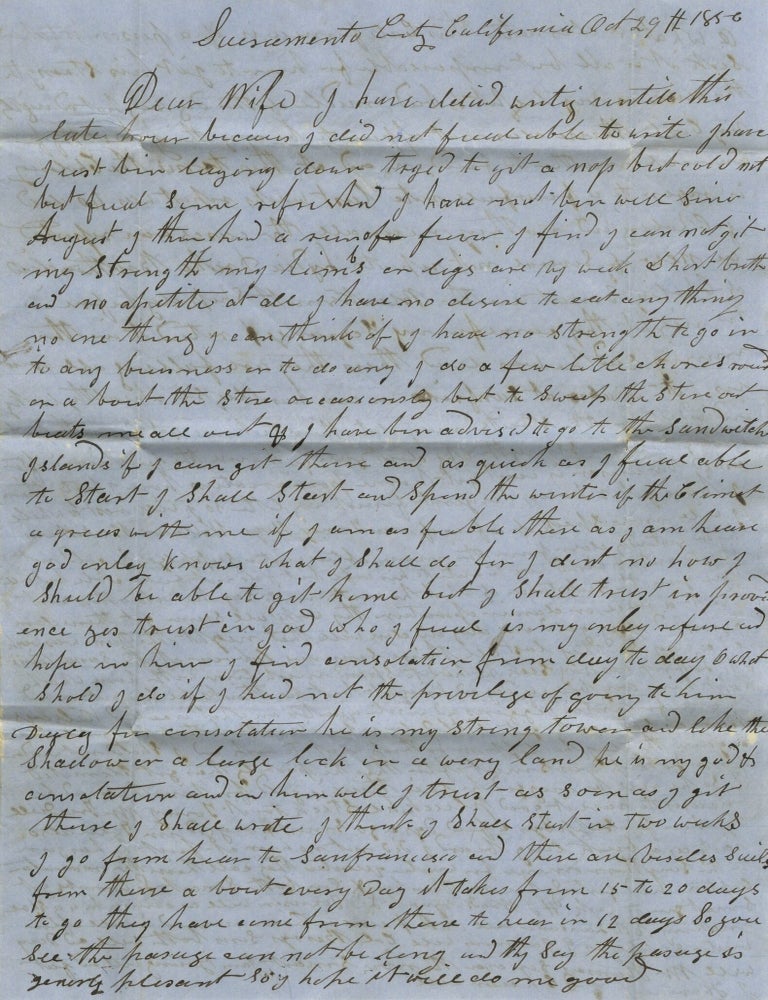 Sacramento City California Oct 29th 1850
Dear Wife I have delaid writig untill this
late hour becaus I did not feeal able to write I have
Just bin laying down tryed to git a nap but cold not
but feeal some refreshd I have not bin well sinc
August I then had a run of fever I find I can not git
my strength my lims or legs are vy week Short breth
and no apetite at all I have no desire to eat any thing
no one thing I can think of I have no strength to go in
to any buisness or to do any I do a few litle chores round
or a bout the store occasionely but to sweep the store out
beats me all out & I have bin advisd to go to the Sandwitch
Islands if I can git there and as quick as I feeal able
to Start I Shall Start and Spend the winter if the Climet
agreas with me if I am as feeble there as I am heare
god onley knows what I Shall do for I dont no how I
Should be able to git home but I Shall trust in provid
ence yes trust in god who I feeal is my onley refuge and
hope in him I find consolation from day to day O what
Shold I do if I had not the privilege of going to him
Dayly for consolation he is my strong tower and like the
Shadow or a large Rock in a wery land he is my god &
consolation and in him will I trust as soon as I git
there I Shall write I think I Shall Start in two weeks
I go from hear to Sanfrancisco and there are Veseles Sails
from there a bout every Day it takes from 15 to 20 days
to go they have come from there to hear in 12 days So you
See the pasage can not be long and thy Say the pasage is
generly plesant So I hope it will do me good